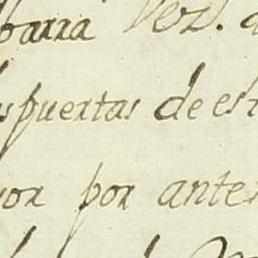 barra Vez.
spuertas de est
or por ante